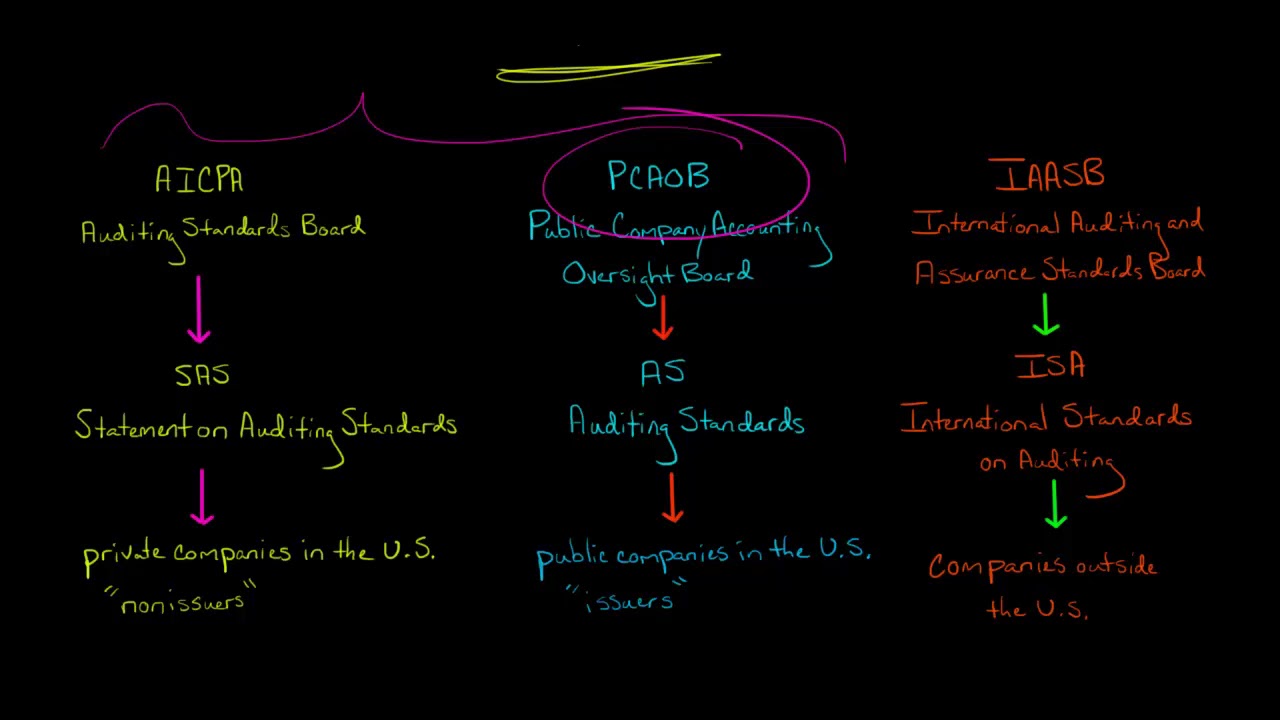 AICPA
Auditing Standards Board
SAS
Statement on Auditing Standards
private companies in the U.S.
"nonissuers"
PCAOB
Public Company Accounting
Oversight Board
AS
Auditing Standards
public companies in the U.S.
"issuers"
IAASB
International Auditing and
Assurance Standards Board
ISA
International Standards
on Auditing
Companies outside
the U.S.